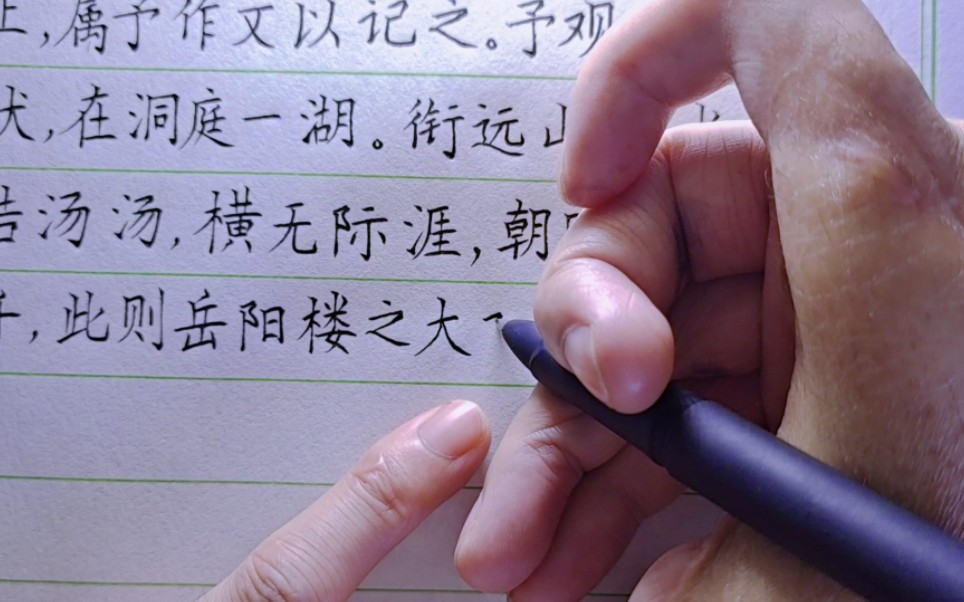 上,属予作文以记之。予观
状,在洞庭一湖。衔远山
浩汤汤,横无际涯,朝
,此则岳阳楼之大